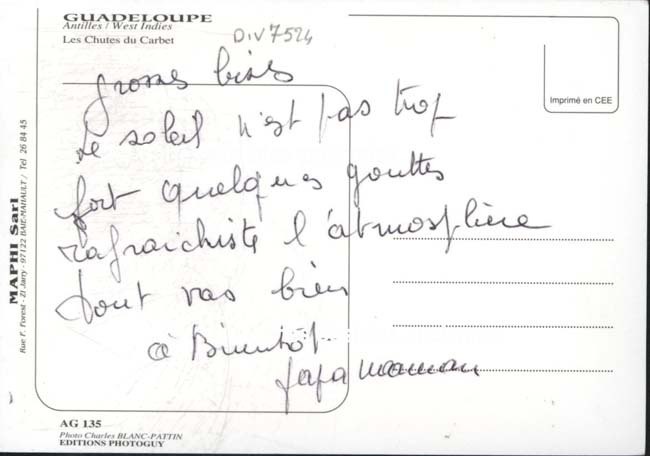 GUADELOUPE
Antilles / West Indies
Les Chutes du Carbet
DIV7524
Imprimé en CEE
grosses bises
Le soleil n'est pas trop
fort quelques gouttes
rafraichiste l'atmosphère
tout vas bien
à Bientôt
papa maman
MAPHI Sarl
Rue F. Forest - ZI Jarry - 97122 BAIE-MAHAULT / Tel 26 84 45
AG 135
Photo Charles BLANC-PATTIN
EDITIONS PHOTOGUY